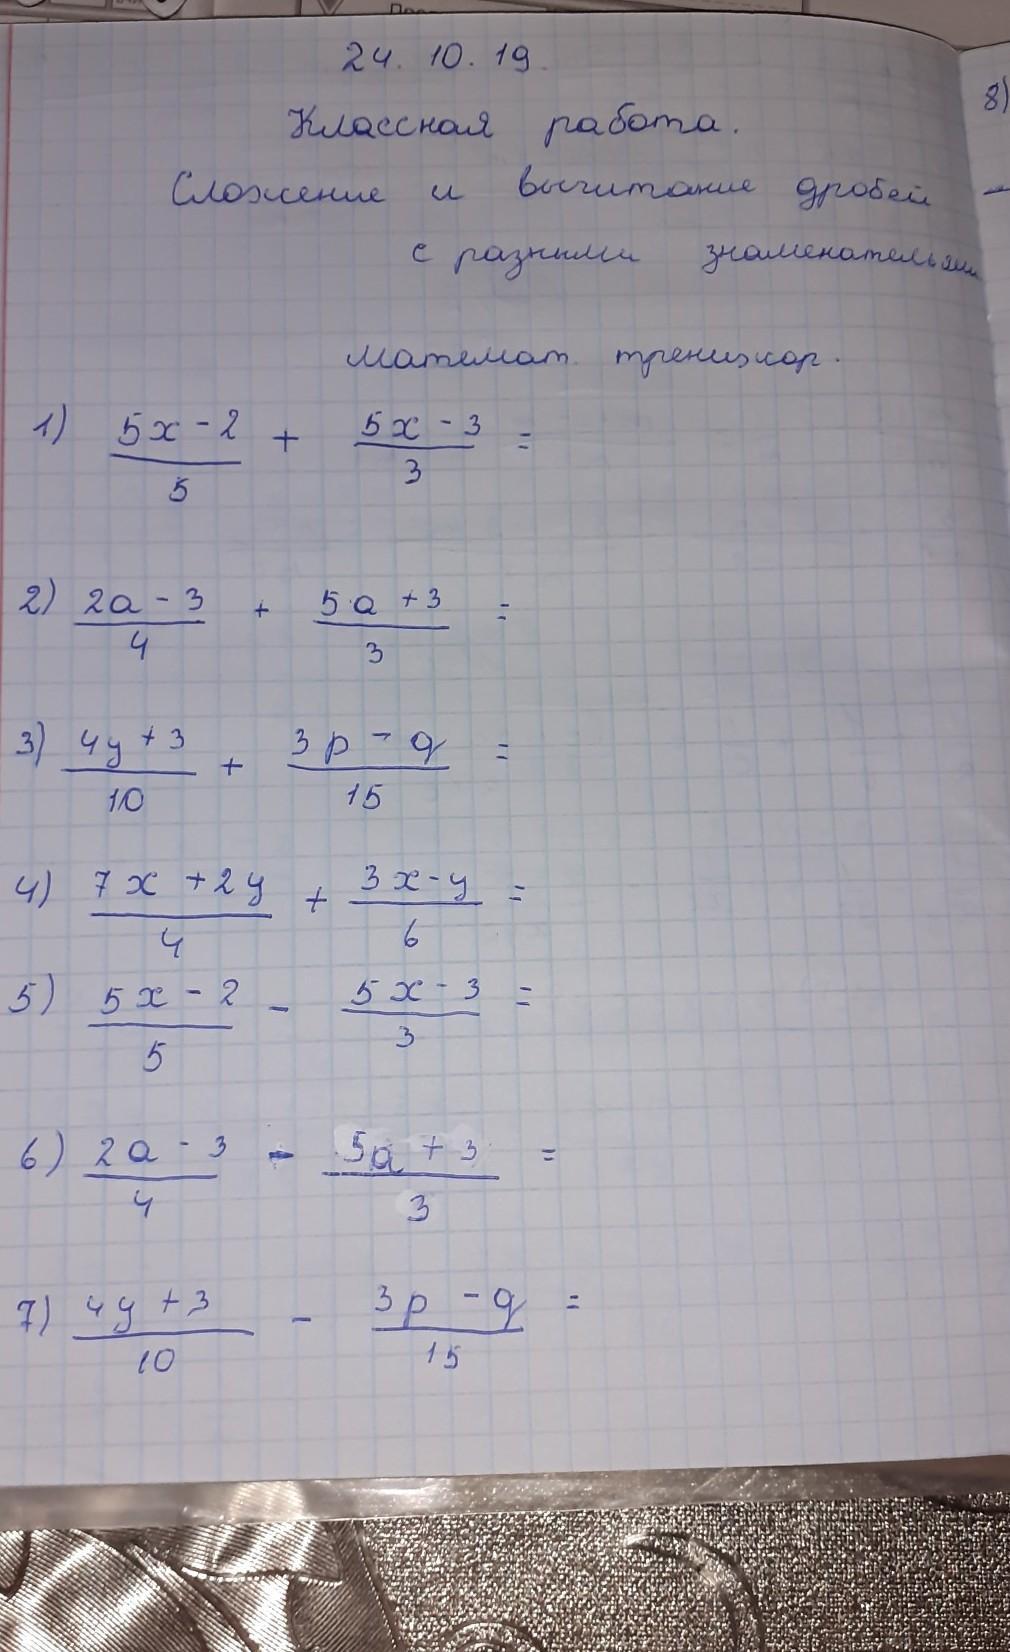 24. 10. 19.
Классная работа.
Сложение и вычитание дробей
с разными знаменательями
Математ. тренижор.
1) (5x - 2)/5 + (5x - 3)/3 =
2) (2a - 3)/4 + (5a + 3)/3 =
3) (4y + 3)/10 + (3p - q)/15 =
4) (7x + 2y)/4 + (3x - y)/6 =
5) (5x - 2)/5 - (5x - 3)/3 =
6) (2a - 3)/4 - (5a + 3)/3 =
7) (4y + 3)/10 - (3p - q)/15 =
8)